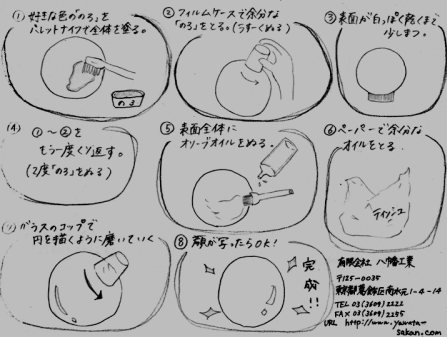 ① 好きな色の「のろ」を
パレットナイフで全体を塗る。
のろ
② フィルムケースで余分な
「のろ」をとる。(うすーくぬる)
③ 表面が白っぽく乾くまで
少しまつ。
④ ①〜②を
もう一度くり返す。
(2度「のろ」をぬる)
⑤ 表面全体に
オリーブオイルをぬる。
⑥ ペーパーで余分な
オイルをとる。
ティッシュ
⑦ ガラスのコップで
円を描くように磨いていく
⑧ 顔が写ったらOK!
完成!!
有限会社 八幡工業
〒125-0035
東京都葛飾区南水元1-4-14
TEL 03(3609)2222
FAX 03(3609)2255
URL http://www.yawata-
sakan.com